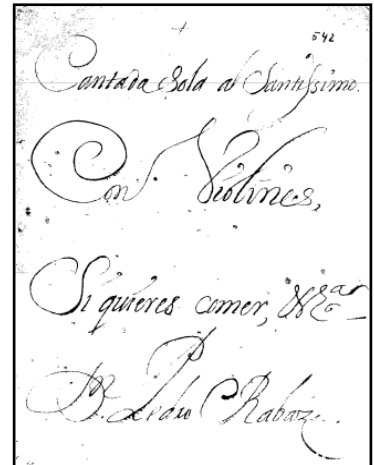 542
Cantada Sola al Santissimo.
Con Violines,
Si quieres comer,
D.n Pedro Rabaza.